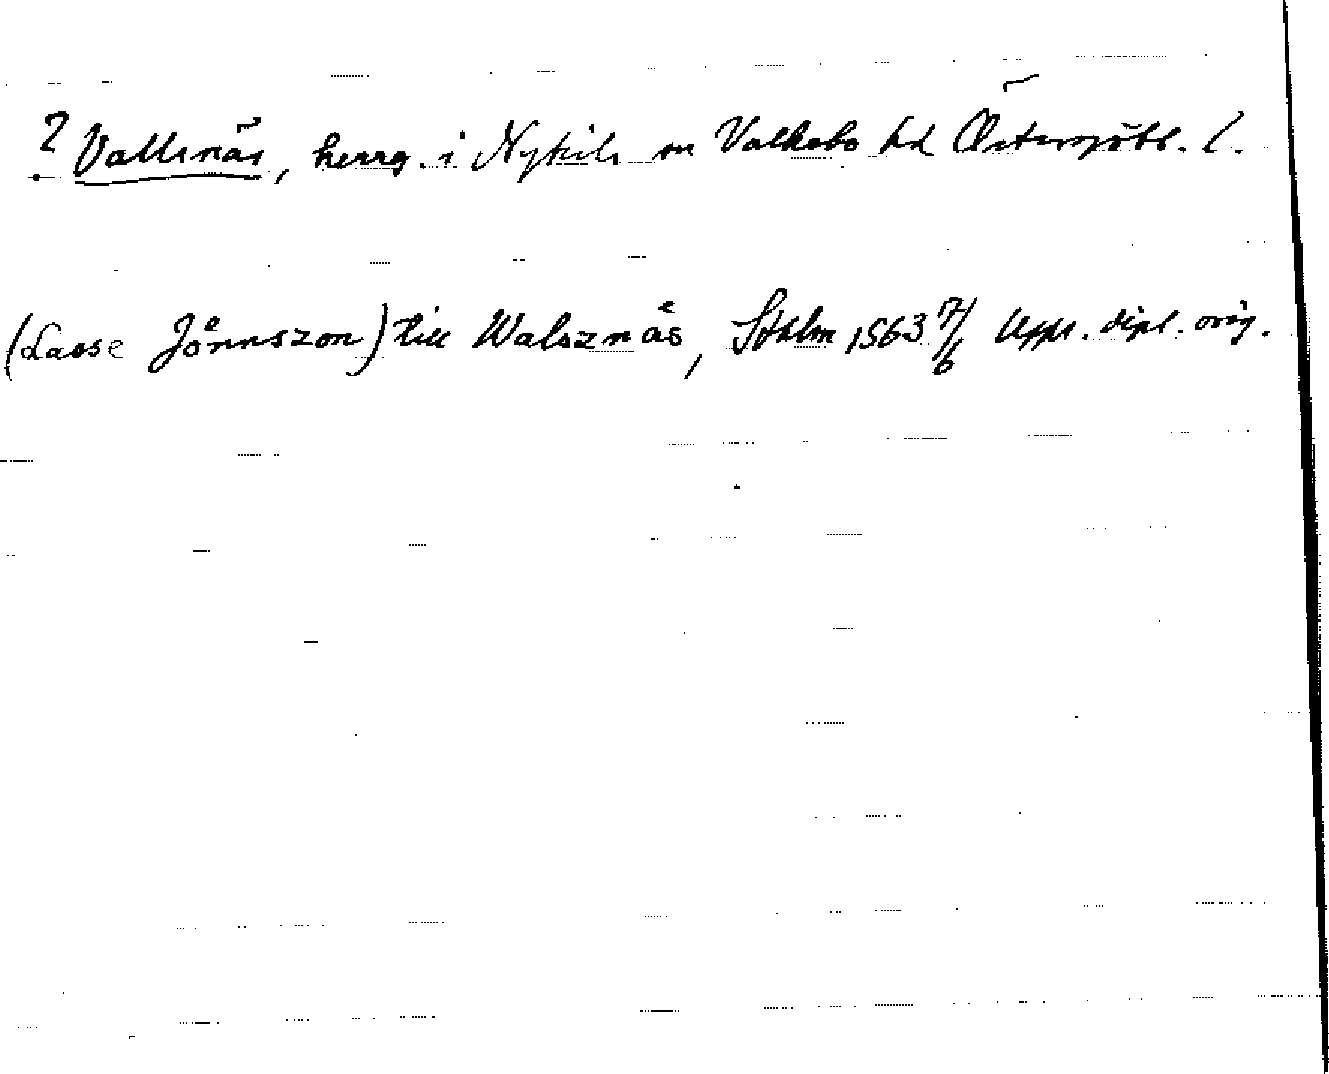 ? Vallsnäs, herrg. i Nykils sn Valkebo hd Östergötl. l.
(Lasse Jönnszon) till Walsznäs, Sthlm 1563 7/6 Uppl. dipl. orig.